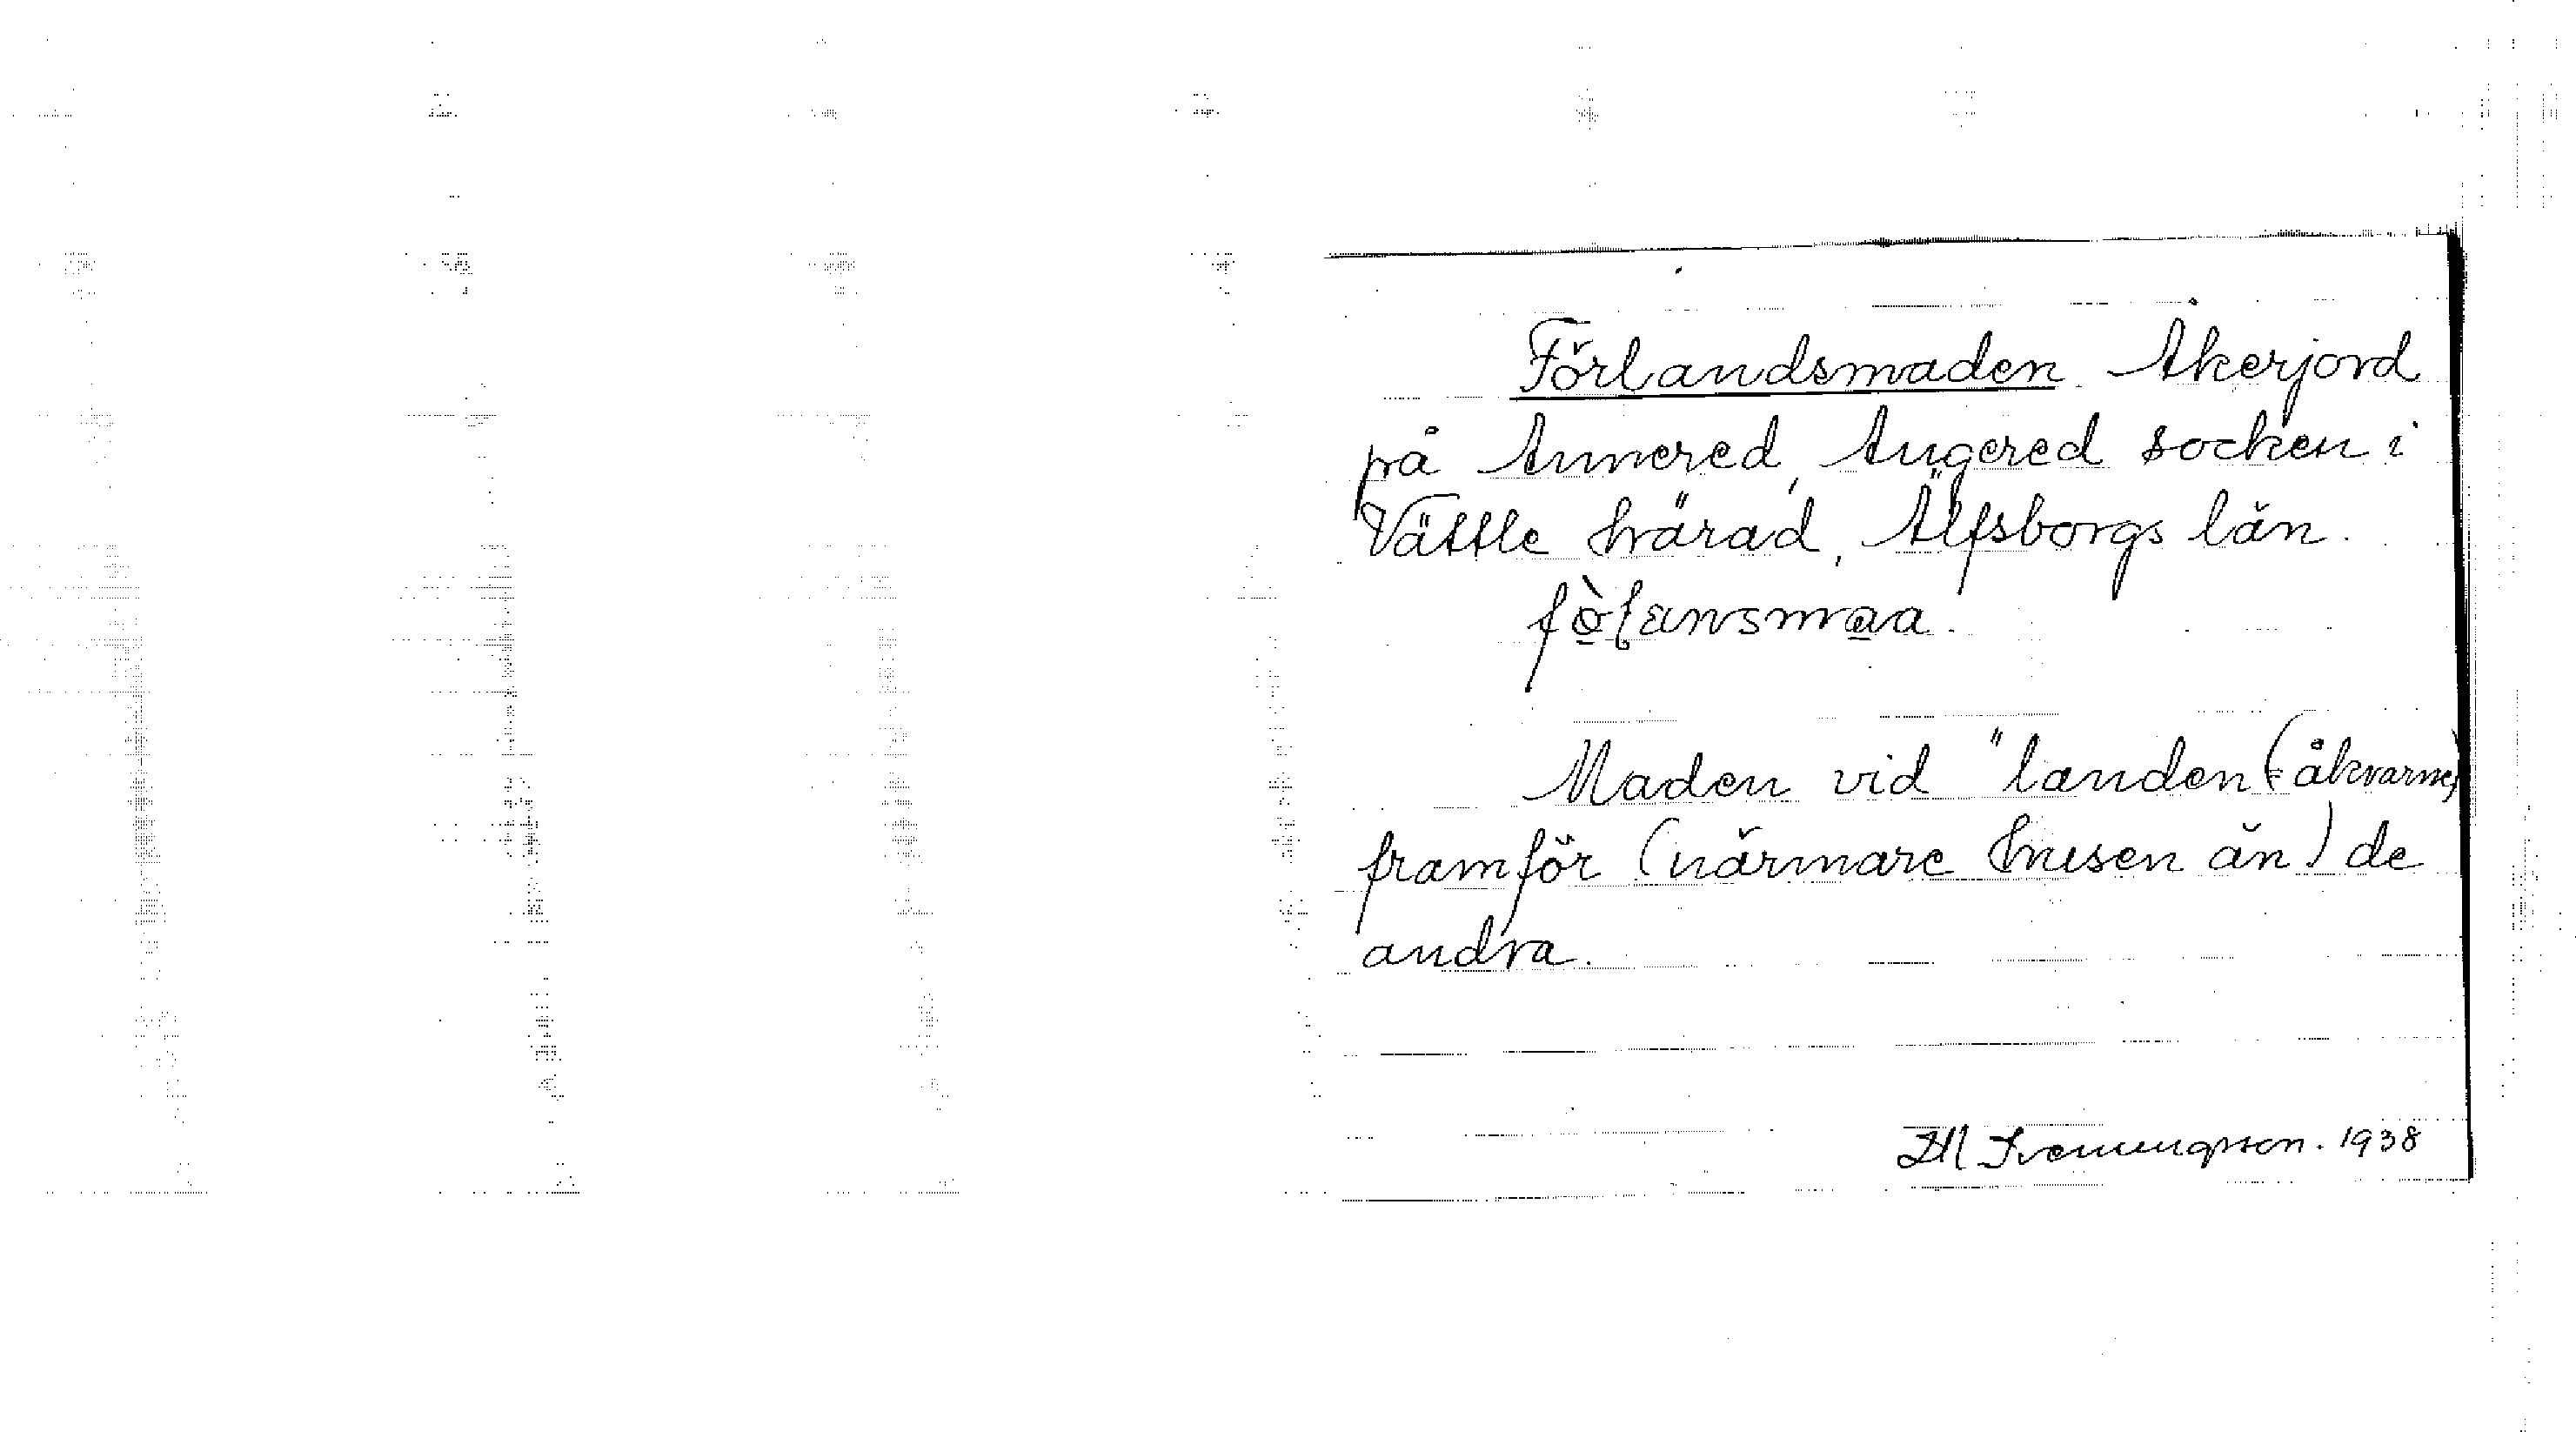 Förlandsmaden Åkerjord
på Annered, Angered socken i
Vättle härad, Älfsborgs län.
Maden vid "landen (=åkrarne)
framför (närmare husen än) de
andra.
1938